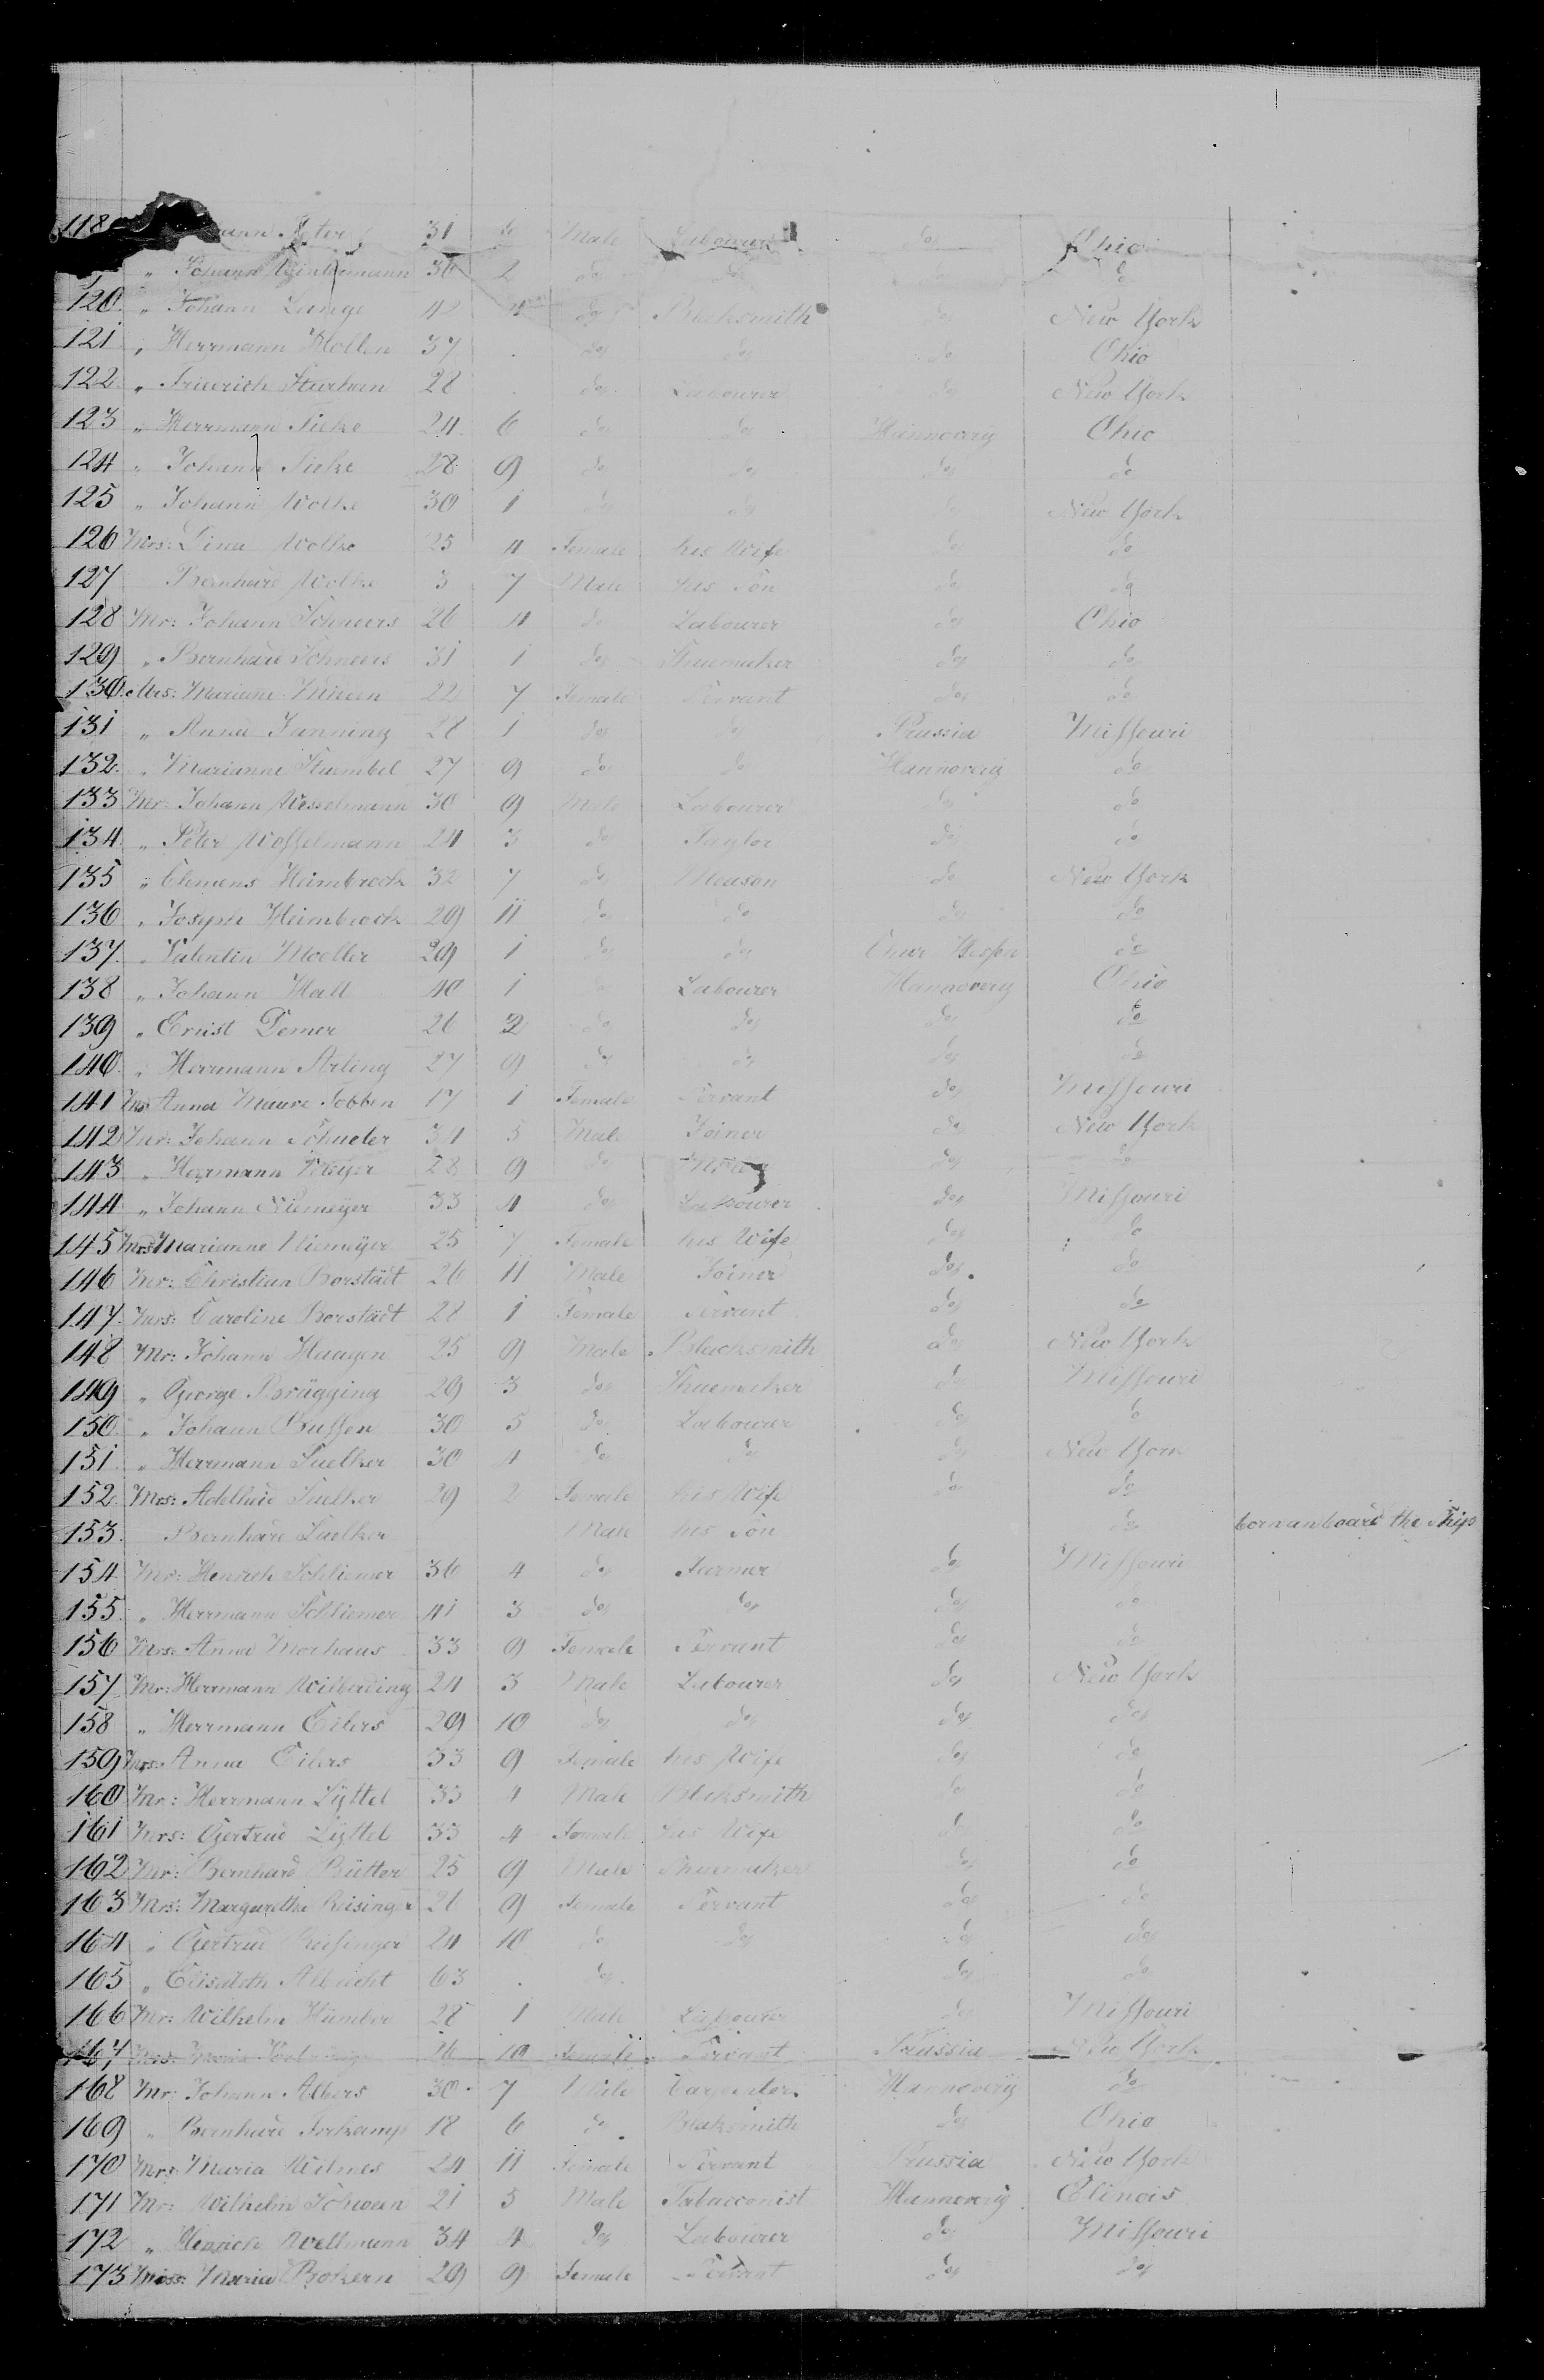 118 Peter 31 6 Male Labourer do Ohio
" Johann Wintermann 36 2 do do do do
120. " Johann Lange 42 4 do Blaksmith do New York
121 " Herrmann Mollen 37 . do do do Ohio
122. " Friedrich 28 . do Labourer do New York
123 " Herrmann Sieke 24 6 do do Hannover Ohio
124 " Johann Sieke 28 9 do do do do
125 " Johann Wolke 30 1 do do do New York
126 Mrs: Lina Wolke 25 4 Female his Wife do do
127 Bernhard Wolke 3 7 Male his Son do do
128 Mr: Johann Schneers 26 4 do Labourer do Ohio
129 " Bernhard Schneers 31 1 do Shuemaker do do
130. Mrs: Mariane 22 7 Female Servant do do
131 " Anna Janning 28 1 do do Prussia Missouri
132. " Marianne Stuembel 27 9 do do Hannover do
133 Mr: Johann Wesselmann 30 9 Male Labourer do do
134. " Peter Wosselmann 24 3 do Taylor do do
135 " Clemens Heimbrock 32 7 do Meason do New York
136 " Joseph Heimbrock 29 11 do do do do
137. " Valentin Moeller 29 1 do do Chur Hessen do
138 " Johann Hall 40 1 do Labourer Hannover Ohio
139 " Ernst Demer 26 2 do do do do
140. " Herrmann Arling 27 9 do do do do
141 Mrs Anna Maure Tobben 17 1 Female Servant do Missouri
142 Mr: Johann Schueter 34 5 Male Joiner do New York
143 " Herrmann 28 9 do do do
144 " Johann Niemeÿer 33 4 do Labourer do Missouri
145 Mrs Marianne Niemeÿer 25 7 Female his Wife do do
146 Mr: Christian Borstädt 26 11 Male Joiner do do
147. Mrs: Caroline Borstädt 28 1 Female Servant do do
148 Mr: Johann Haagen 25 9 Male Blacksmith do New York
149 " George Brügging 29 3 do Shuemaker do Missouri
150. " Johann Bussen 30 5 do Labourer do do
151. " Herrmann Suelker 30 4 do do do New York
152. Mrs: Adelheid Suelker 29 2 Female his Wife do do
153. Bernhard Suelker Male his Son do born an board the Ship
154 Mr: Henrich Schliemer 36 4 do Farmer do Missouri
155. " Herrmann Schliemer 41 3 do do do do
156 Mrs: Anna Morhaus 33 9 Female Servant do do
157 Mr: Herrmann Wilberding 24 3 Male Labourer do New York
158 " Herrmann Eilers 29 10 do do do do
159 Mrs: Anna Eilers 33 9 Female his Wife do do
160 Mr: Herrmann Lÿttel 33 4 Male Blaksmith do do
161 Mrs: Gertrud Lÿttel 33 4 Female his Wife do do
162 Mr: Bernhard Bütter 25 9 Male Shuemaker do do
163 Mrs: Margarethe Reisinger 21 9 Female Servant do do
164 " Gertrud Reisinger 24 10 do do do do
165 " Elisabeth Albracht 63 . do do do
166 Mr: Wilhelm Hümber 28 1 Male Labourer do Missouri
167, Mrs: Maria 26 10 Female Servant Prussia New York
168 Mr: Johann Albers 30 7 Male Carpenter Hannover do
169 " Bernhard 18 6 do Blaksmith do Ohio
170 Mrs Maria Wilmes 24 11 Female Servant Prussia New York
171 Mr: Wilhelm 21 5 Male Tabacconist Hannover Elinois
172 " Henrich Wellmann 34 4 do Labourer do Missouri
173 Miss: Maria Brokern 29 9 Female Servant do do